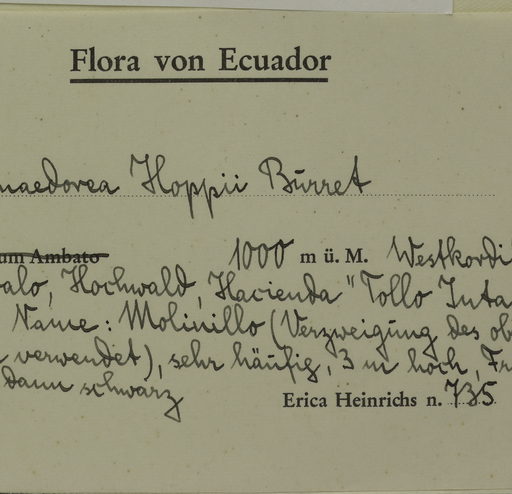 Flora von Ecuador
maedorea Hoppii Burret
um Ambato 1000 m ü. M. Westkordi
alo, Hochwald, Hacienda "Tollo Inta
Name: Molinillo (Verzweigung des ob
verwendet), sehr häufig, 3 m hoch, Fr
dann schwarz
Erica Heinrichs n. 735